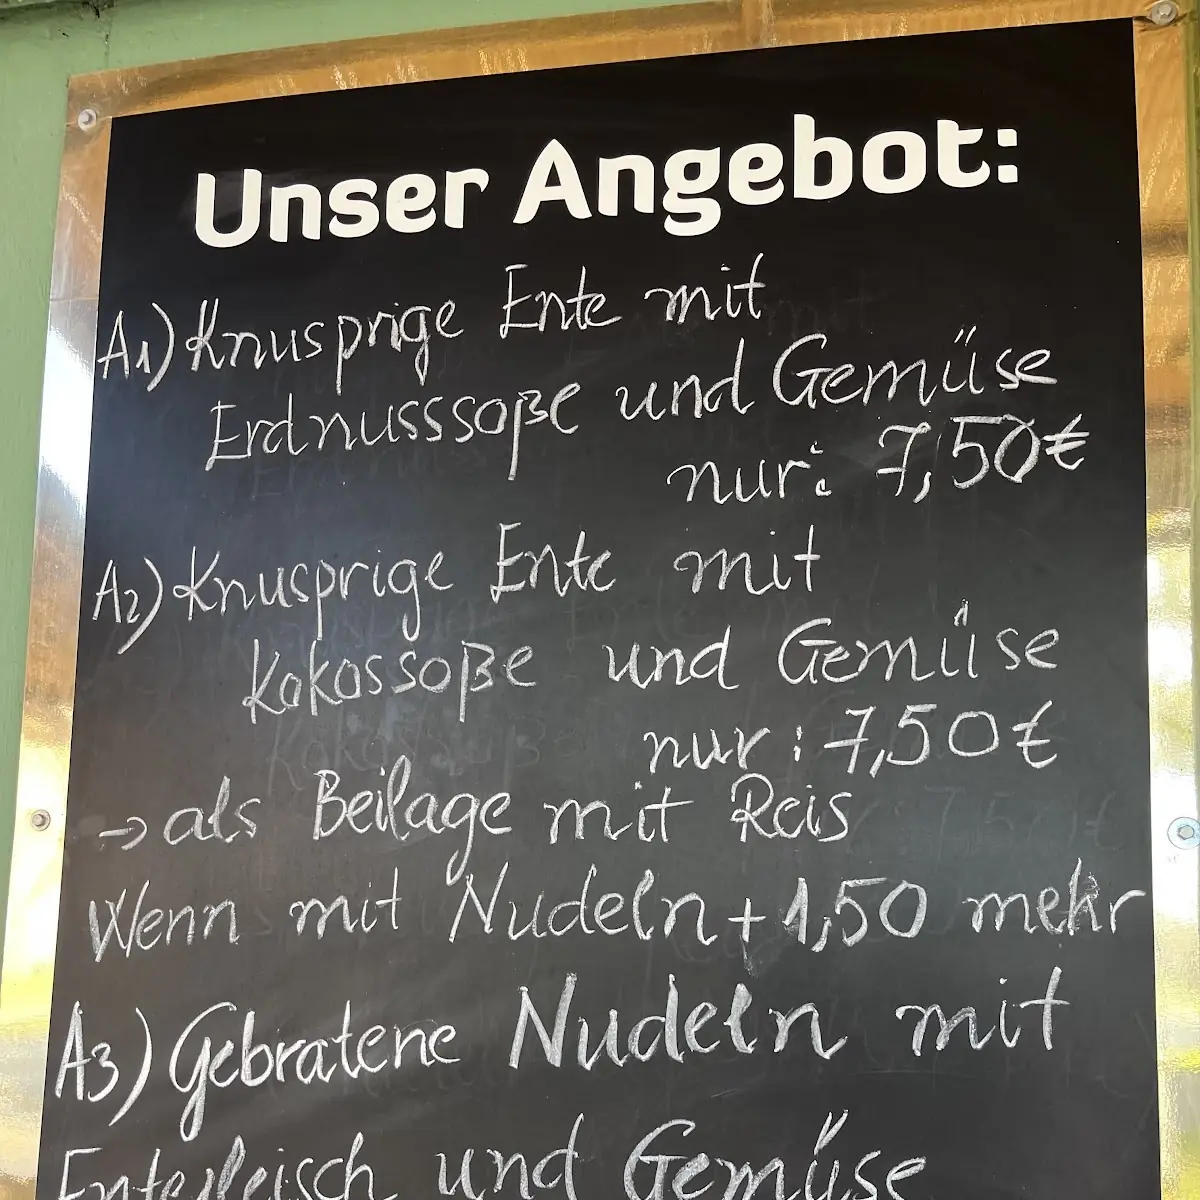 Unser Angebot:
A1) Knusprige Ente mit
Erdnusssoße und Gemüse
nur: 7,50€
A2) Knusprige Ente mit
Kokossoße und Gemüse
nur: 7,50€
→ als Beilage mit Reis
Wenn mit Nudeln + 1,50 mehr
A3) Gebratene Nudeln mit
Entefleisch und Gemüse